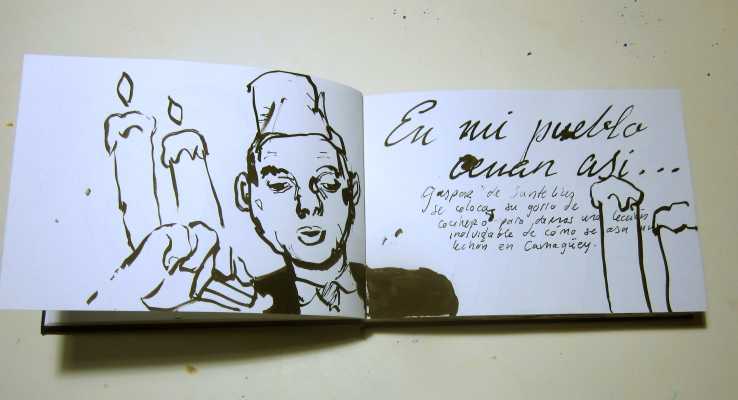 En mi pueblo
cenan así...
Gaspar de Santelices
se coloca su gorro de
cocinero para darnos una lección
inolvidable de cómo se asa un
lechón en Camagüey.